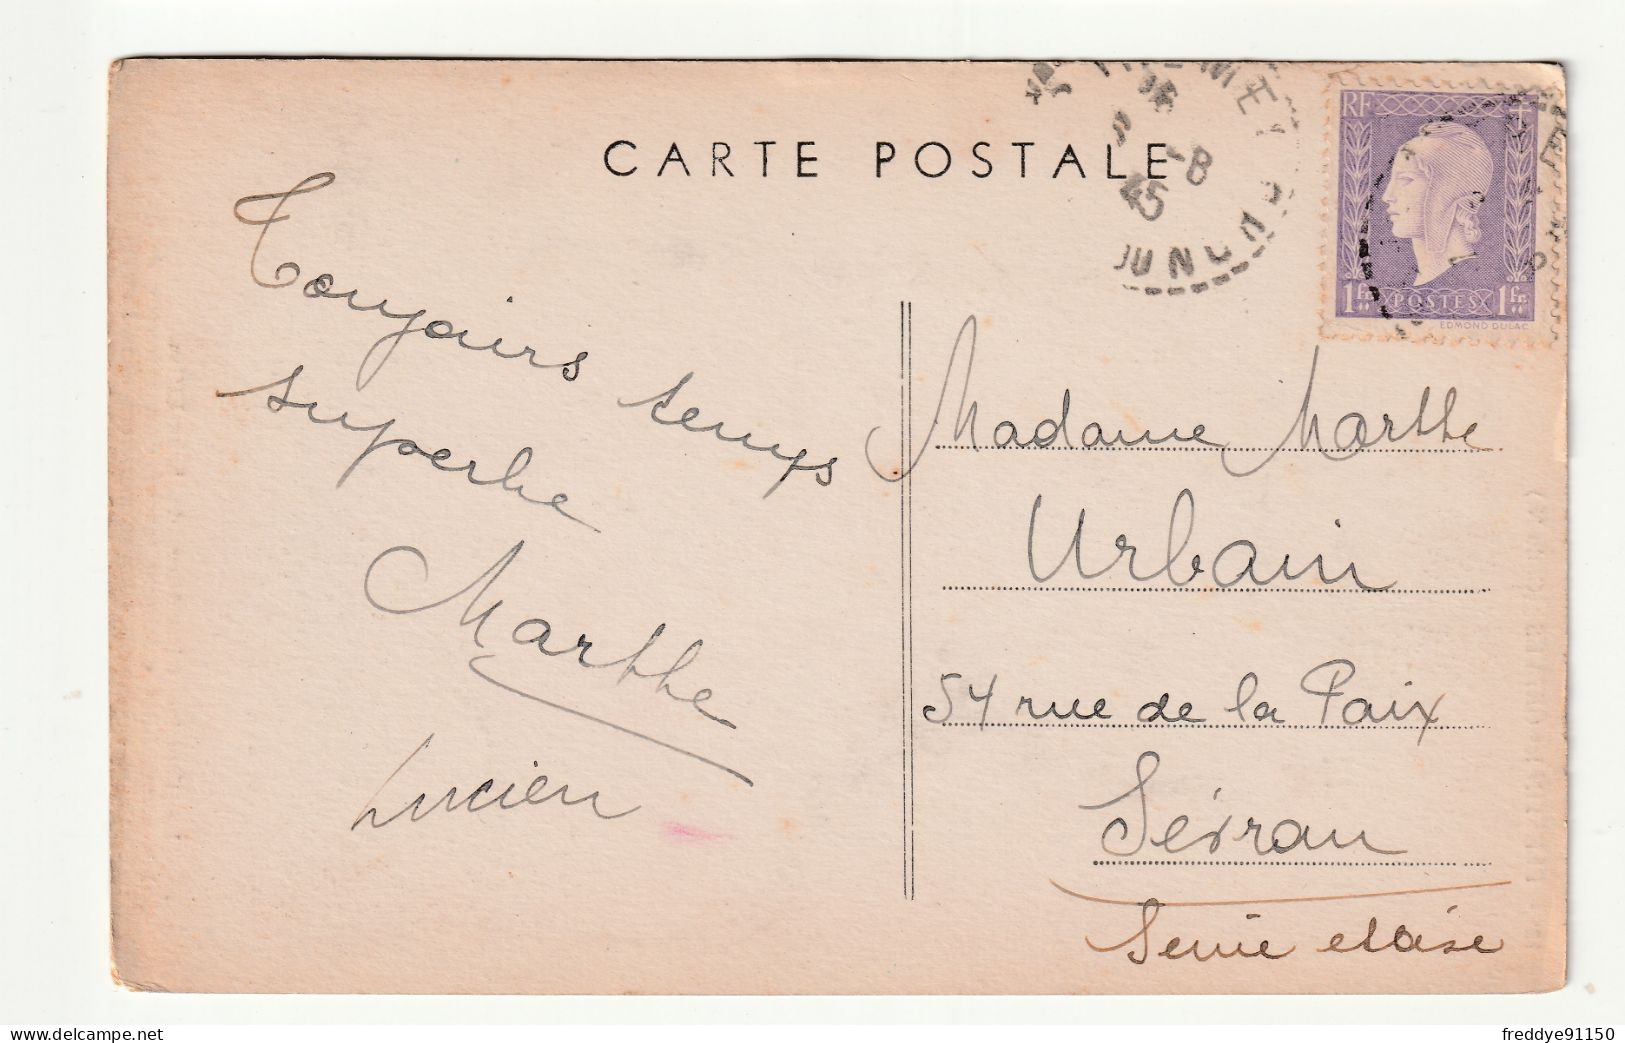 CARTE POSTALE
-8
45
RF
1fr
POSTES
1fr
EDMOND DULAC
Toujours temps
superbe
Marthe
Lucien
Madame Marthe
Urbain
54 rue de la Paix
Sévran
Seine et Oise
freddye91150